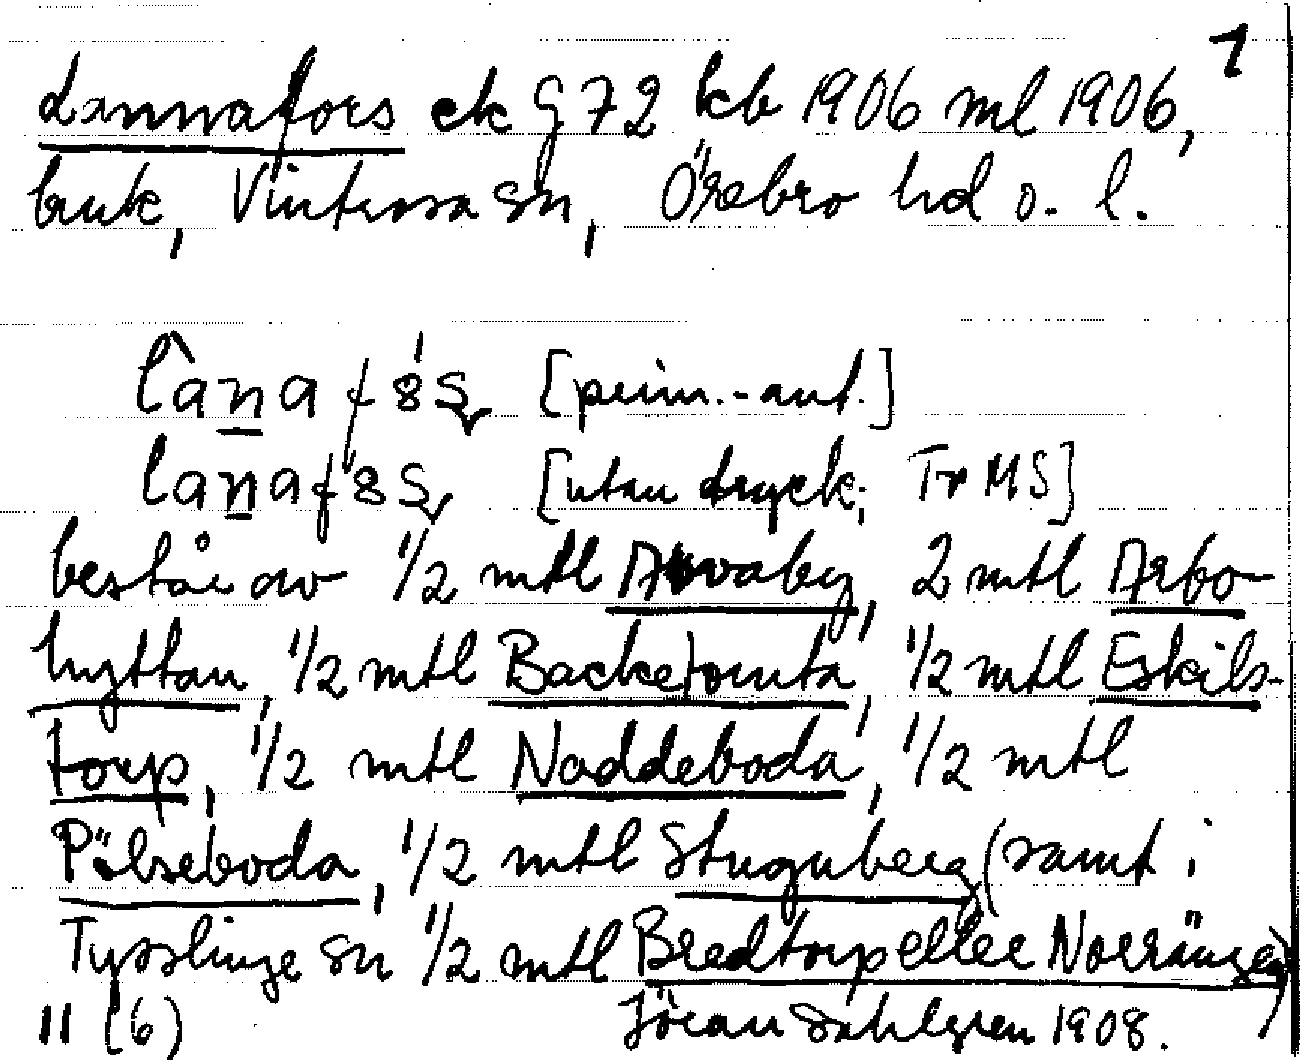 1
Lannafors ek G 72 kb 1906 ml 1906,
bruk, Vintrosa sn, Örebro hd o. l.
[prim.-ant.]
[utan tryck; Tr MS]
består av 1/2 mtl Arvaby, 2 mtl Arbo-
hyttan, 1/2 mtl Backetomta, 1/2 mtl Eskils-
torp, 1/2 mtl Naddeboda, 1/2 mtl
Pölseboda, 1/2 mtl Stuguberg (samt i
Tysslinge sn 1/2 mtl Bredtorp eller Norrängen)
11 (6) Jöran Sahlgren 1908.